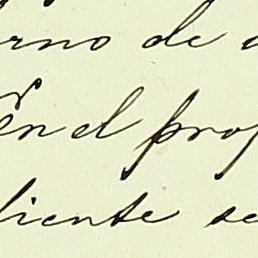 rno de
En el prop
diente se